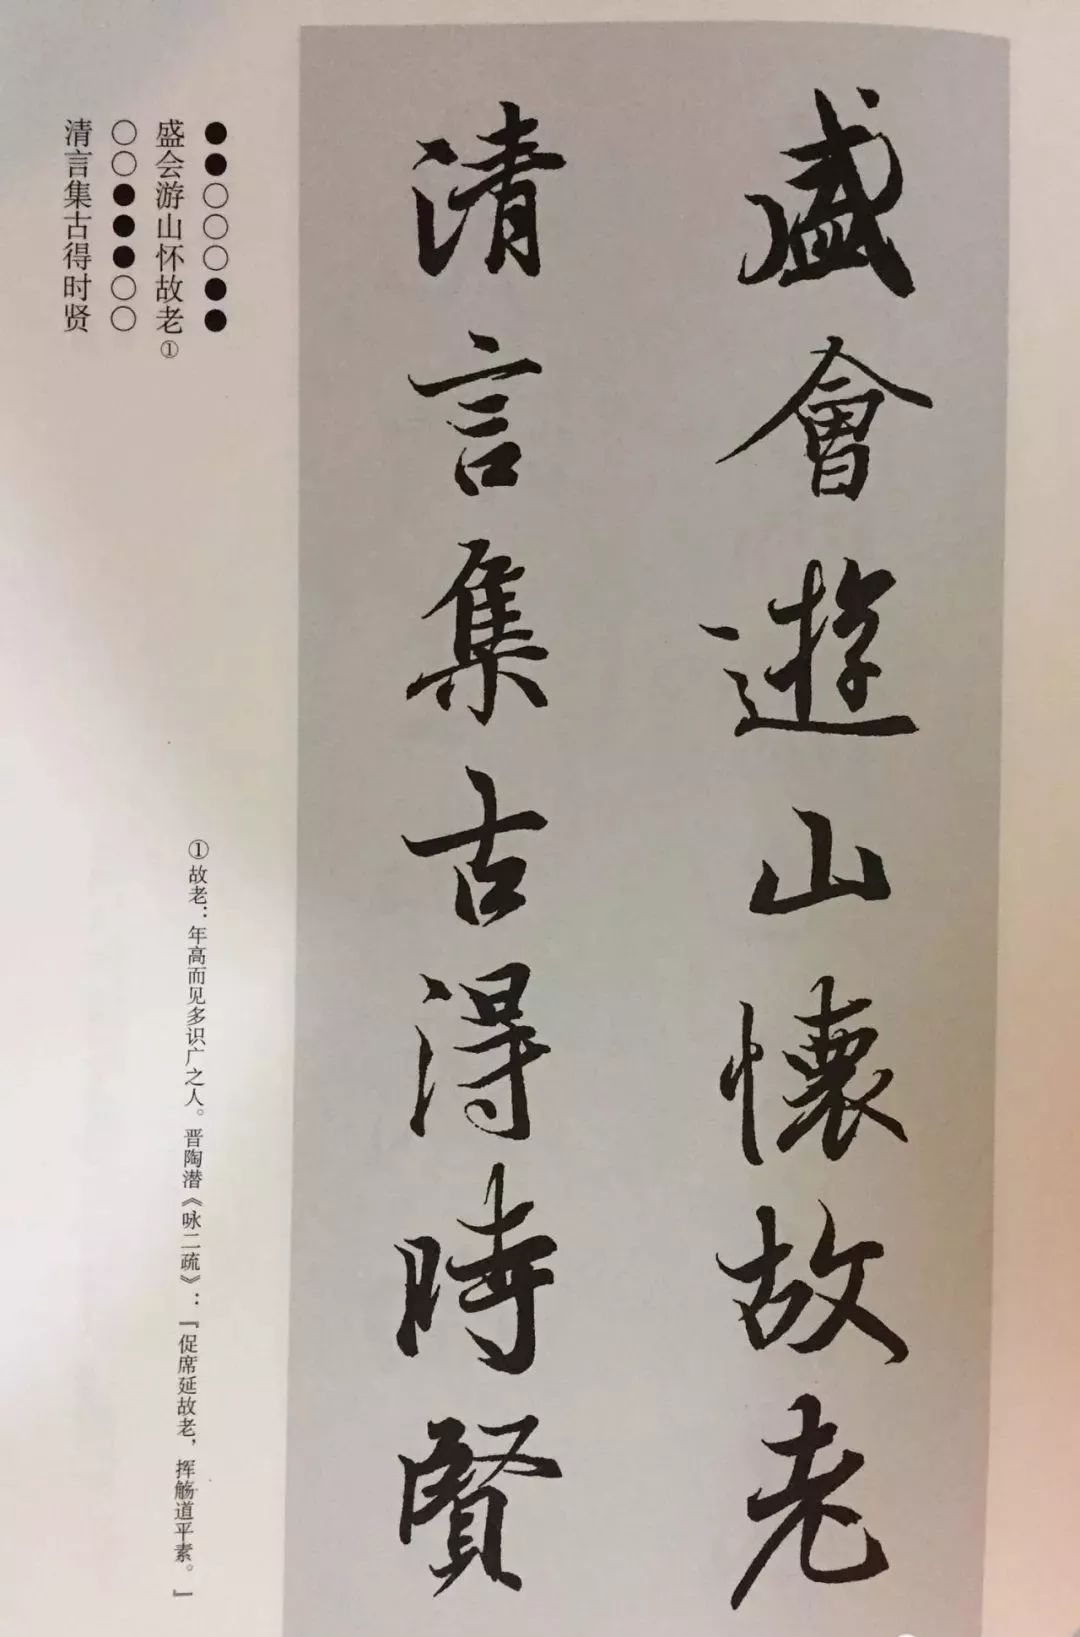 盛會遊山懷故老
清言集古得時賢
●●○○○●●
盛会游山怀故老①
○○●●●○○
清言集古得时贤
①故老：年高而见多识广之人。晋陶潜《咏二疏》：『促席延故老，挥觞道平素。』